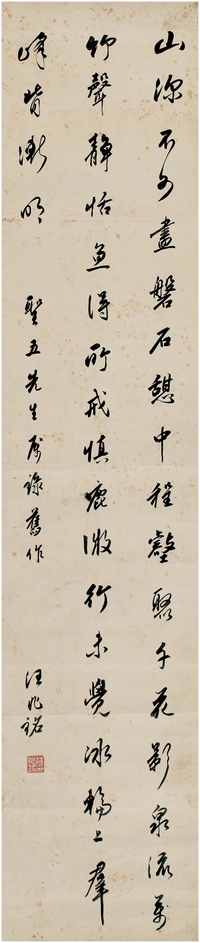 山深不可盡磐石憩中程壑聚千花影泉流萬
竹聲靜恬魚得所戒慎鹿微行未覺冰輪上羣
峰背漸明
聖五先生屬錄舊作
汪兆銘